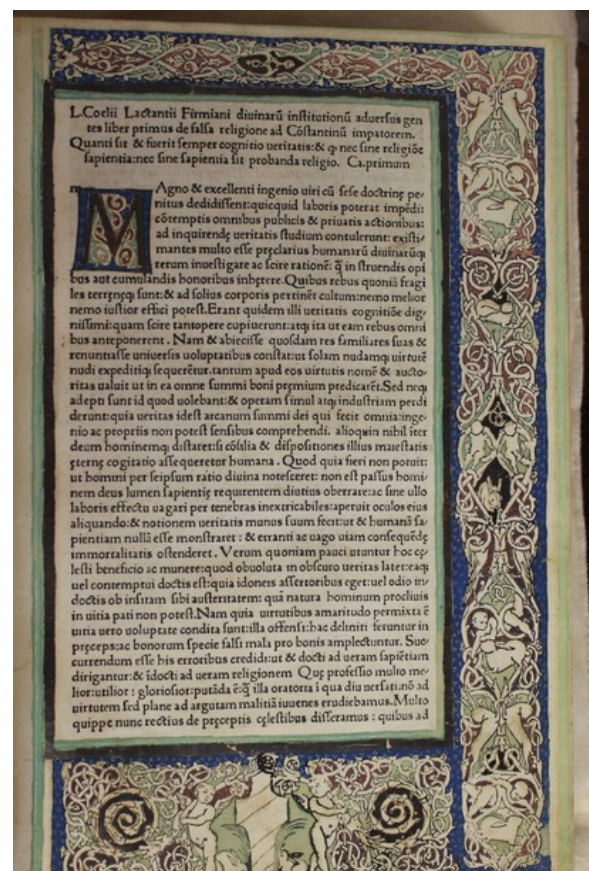 L. Coelii Lactantii Firmiani diuinarū institutionū aduersus gen
tes liber primus de falsa religione ad Cōstantinū impatorem.
Quanti sit & fuerit semper cognitio ueritatis: & ꝙ nec sine religiōe
sapientia: nec sine sapientia sit probanda religio. Ca. primum
m
MAgno & excellenti ingenio uiri cū sese doctrinę pe-
nitus dedidissent: quicquid laboris poterat impēdi:
cōtemptis omnibus publicis & priuatis actionibus:
ad inquirendę ueritatis studium contulerunt: existi-
mantes multo esse pręclarius humanarū diuinarūqꝫ
rerum inuestigare ac scire rationē: ꝙ̄ in struendis opi
bus aut cumulandis honoribus inhęrere. Quibus rebus quoniā fragi
les terręnęqꝫ sunt: & ad solius corporis pertinēt cultum: nemo melior
nemo iustior effici potest. Erant quidem illi ueritatis cognitiōe dig-
nissimi: quam scire tantopere cupiuerunt: atqꝫ ita ut eam rebus omni
bus anteponerent. Nam & abiecisse quosdam res familiares suas &
renuntiasse uniuersis uoluptatibus constat: ut solam nudamqꝫ uirtutē
nudi expeditiqꝫ sequerētur. tantum apud eos uirtutis nomē & aucto-
ritas ualuit ut in ea omne summi boni pręmium predicarēt. Sed neqꝫ
adepti sunt id quod uolebant: & operam simul atqꝫ industriam perdi
derunt: quia ueritas idest arcanum summi dei qui fecit omnia: inge-
nio ac propriis non potest sensibus comprehendi. alioquin nihil iter
deum hominemqꝫ distaret: si cōsilia & dispositiones illius maiestatis
ęternę cogitatio assequeretur humana. Quod quia fieri non potuit:
ut homini per seipsum ratio diuina notesceret: non est passus homi-
nem deus lumen sapientię requirentem diutius oberrare: ac sine ullo
laboris effectu uagari per tenebras inextricabiles: aperuit oculos eius
aliquando: & notionem ueritatis munus suum fecit: ut & humanā sa-
pientiam nullā esse monstraret: & erranti ac uago uiam consequēdę
immortalitatis ostenderet. Verum quoniam pauci utuntur hoc cę-
lesti beneficio ac munere: quod obuoluta in obscuro ueritas latet: eaqꝫ
uel contemptui doctis est: quia idoneis assertoribus eget: uel odio in-
doctis ob insitam sibi austeritatem: quā natura hominum procliuis
in uitia pati non potest. Nam quia uirtutibus amaritudo permixta ē
uitia uero uoluptate condita sunt: illa offensi: hac deliniti feruntur in
pręceps: ac bonorum specie falsi mala pro bonis amplectuntur. Suc-
currendum esse his erroribus credidi: ut & docti ad ueram sapiētiam
dirigantur: & īdocti ad ueram religionem Quę professio multo me-
lior: utilior: gloriosior: putāda ē: ꝙ̄ illa oratoria ī qua diu uersati: nō ad
uirtutem sed plane ad argutam malitiā iuuenes erudiebamus. Multo
quippe nunc rectius de pręceptis cęlestibus disseramus: quibus ad